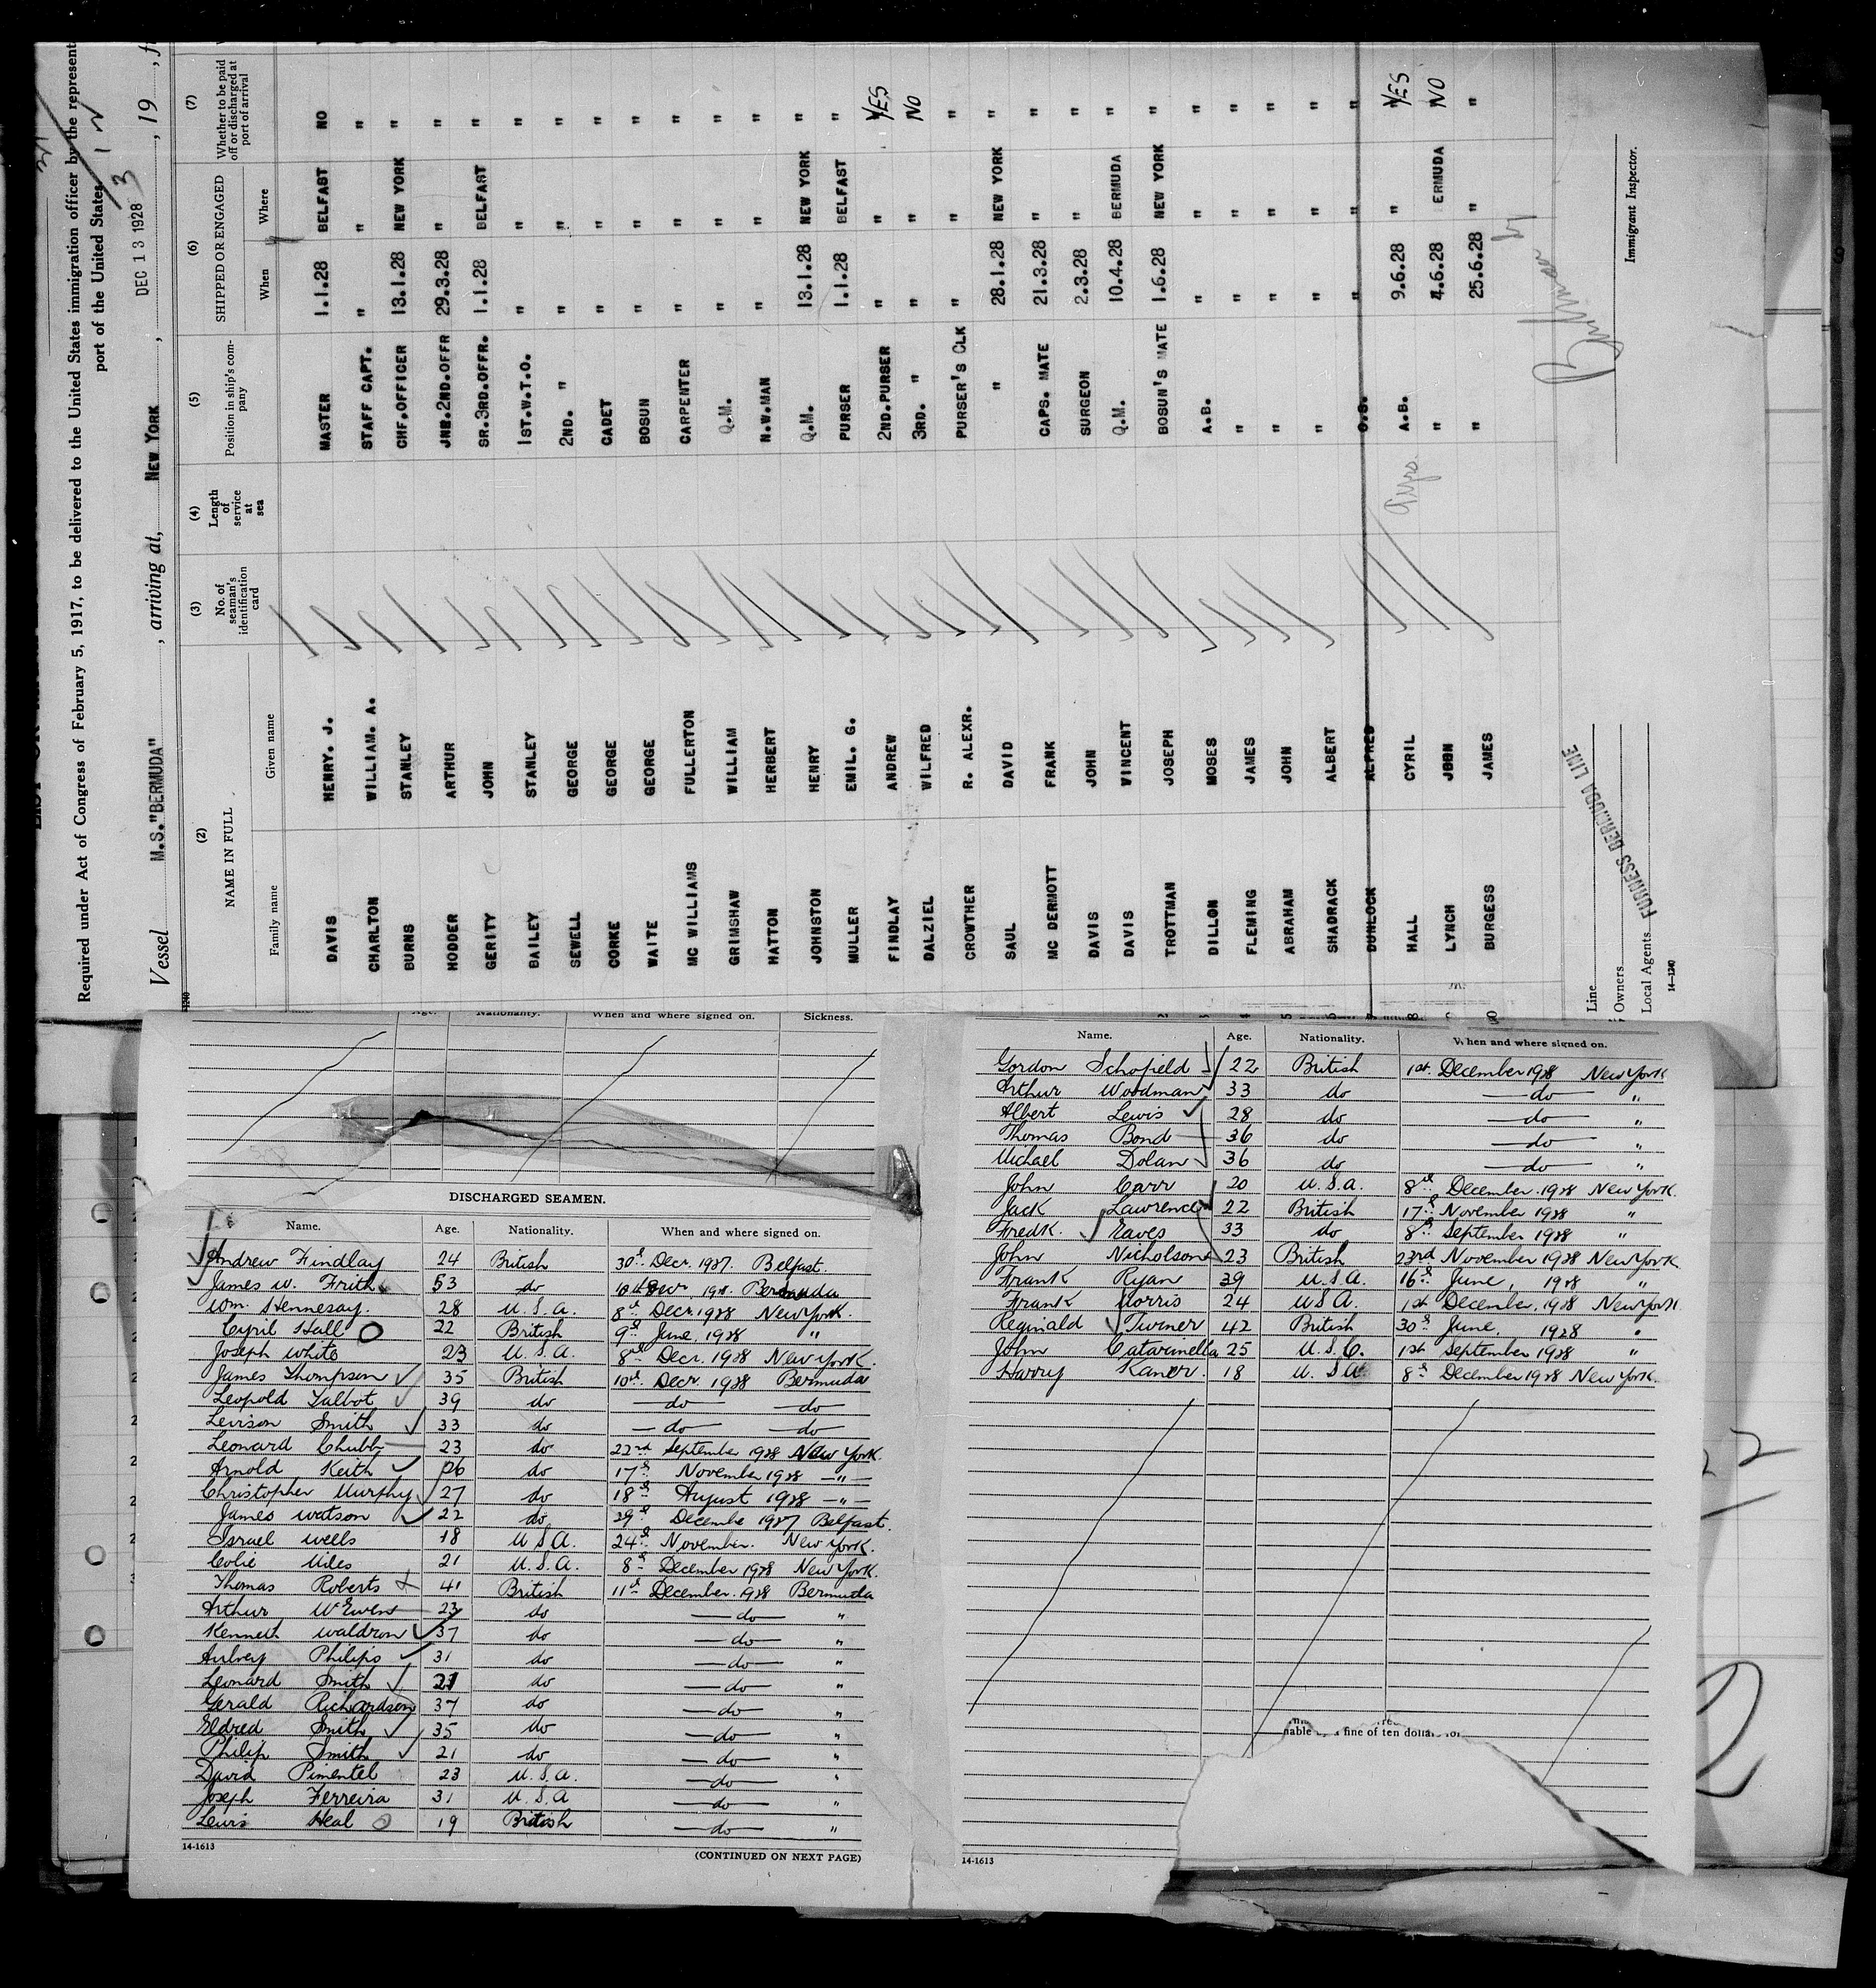 Required under Act of Congress of February 5, 1917, to be delivered to the United States immigration officer by the represent
port of the United States
Vessel M.S."BERMUDA", arriving at, NEW YORK, DEC 13 1928, 19
(2) (3) (4) (5) (6) (7)
NAME IN FULL No. of seaman's identification card Length of service at sea Position in ship's company SHIPPED OR ENGAGED Whether to be paid off or discharged at port of arrival
Family name Given name When Where
DAVIS HENRY. J. MASTER 1.1.28 BELFAST NO
CHARLTON WILLIAM. A. STAFF CAPT. " " "
BURNS STANLEY CHF.OFFICER 13.1.28 NEW YORK "
HODDER ARTHUR JNR.2ND.OFFR 29.3.28 " "
GERITY JOHN SR.3RD.OFFR. 1.1.28 BELFAST "
BAILEY STANLEY 1ST.W.T.O. " " "
SEWELL GEORGE 2ND. " " " "
CORKE GEORGE CADET " " "
WAITE GEORGE BOSUN " " "
MC WILLIAMS FULLERTON CARPENTER " " "
GRIMSHAW WILLIAM Q.M. " " "
HATTON HERBERT N.W.MAN " " "
JOHNSTON HENRY Q.M. 13.1.28 NEW YORK "
MULLER EMIL. G. PURSER 1.1.28 BELFAST "
FINDLAY ANDREW 2ND.PURSER " " YES
DALZIEL WILFRED 3RD. " " " NO
CROWTHER R. ALEXR. PURSER'S CLK " " "
SAUL DAVID " 28.1.28 NEW YORK "
MC DERMOTT FRANK CAPS. MATE 21.3.28 " "
DAVIS JOHN SURGEON 2.3.28 " "
DAVIS VINCENT Q.M. 10.4.28 BERMUDA "
TROTTMAN JOSEPH BOSUN'S MATE 1.6.28 NEW YORK "
DILLON MOSES A.B. " " "
FLEMING JAMES " " " "
ABRAHAM JOHN " " " "
SHADRACK ALBERT " " " "
DUNLOCK ALFRED O.S. " " "
HALL CYRIL 9 yrs. A.B. 9.6.28 " YES
LYNCH JOHN " 4.6.28 ERMUDA NO
BURGESS JAMES " 25.6.28 " "
Line
Owners
Local Agents FURNESS BERMUDA LINE
Immigrant Inspector.
14—1240
Age. Nationality. When and where signed on. Sickness.
DISCHARGED SEAMEN.
Name. Age. Nationality. When and where signed on.
Andrew Findlay 24 British 30th Decr. 1927. Belfast.
James W. Frith 53 do Bermuda
Wm. Hennesay. 28 U.S.A. 8th Decr. 1928 New York.
Cyril Hall 22 British 9th June, 1928 "
Joseph White 23 U.S.A. 8th Decr. 1928 New York.
James Thompson 35 British 10th Decr. 1928 Bermuda
Leopold Talbot 39 do do do
Levison Smith 33 do do do
Leonard Chubb 23 do 22nd September 1928 New York.
Arnold Keith 26 do 17th November 1928 "
Christopher Murphy 27 do 18th August 1928 "
James Watson 22 do 29th Decembe 1927 Belfast.
Israel Wells 18 U.S.A. 24th November. New York.
Colie Miles 21 U.S.A. 8th December 1928 New York.
Thomas Roberts 41 British 11th December. 1928 Bermuda
Arthur 23 do do "
Kenneth Waldron 37 do do "
Aubrey Philips 31 do do "
Leonard Smith 21 do do "
Gerald Richardson 37 do do "
Eldred Smith 35 do do "
Philip Smith 21 do do "
David Pimentel 23 U.S.A. do "
Joseph Ferreira 31 U.S.A do "
Lewis Heal 19 British do "
14-1613
(CONTINUED ON NEXT PAGE)
Name. Age. Nationality. When and where signed on.
Gordon Schofield 22 British 1st. December 1928 New York
Arthur Woodman 33 do do "
Albert Lewis 28 do do "
Thomas Bond 36 do do "
Michael Dolan 36 do do "
John Carr 20 U.S.A. 8th December. 1928 New York.
Jack Lawrence 22 British 17th November 1928 "
Fredk. Eaves 33 do 8th September 1928 "
John Nicholson 23 British 23rd November 1928 New York.
Frank Ryan 39 U.S.A. 16th June, 1928 "
Frank Norris 24 USA. 1st December, 1928 New York.
Reginald Turner 42 British 30th June, 1928 "
John Catarinella 25 U.S.A. 1st September 1928 "
Harry Kaner. 18 U.S.A. 8th December 1928 New York.
fine of ten dollars
14-1613